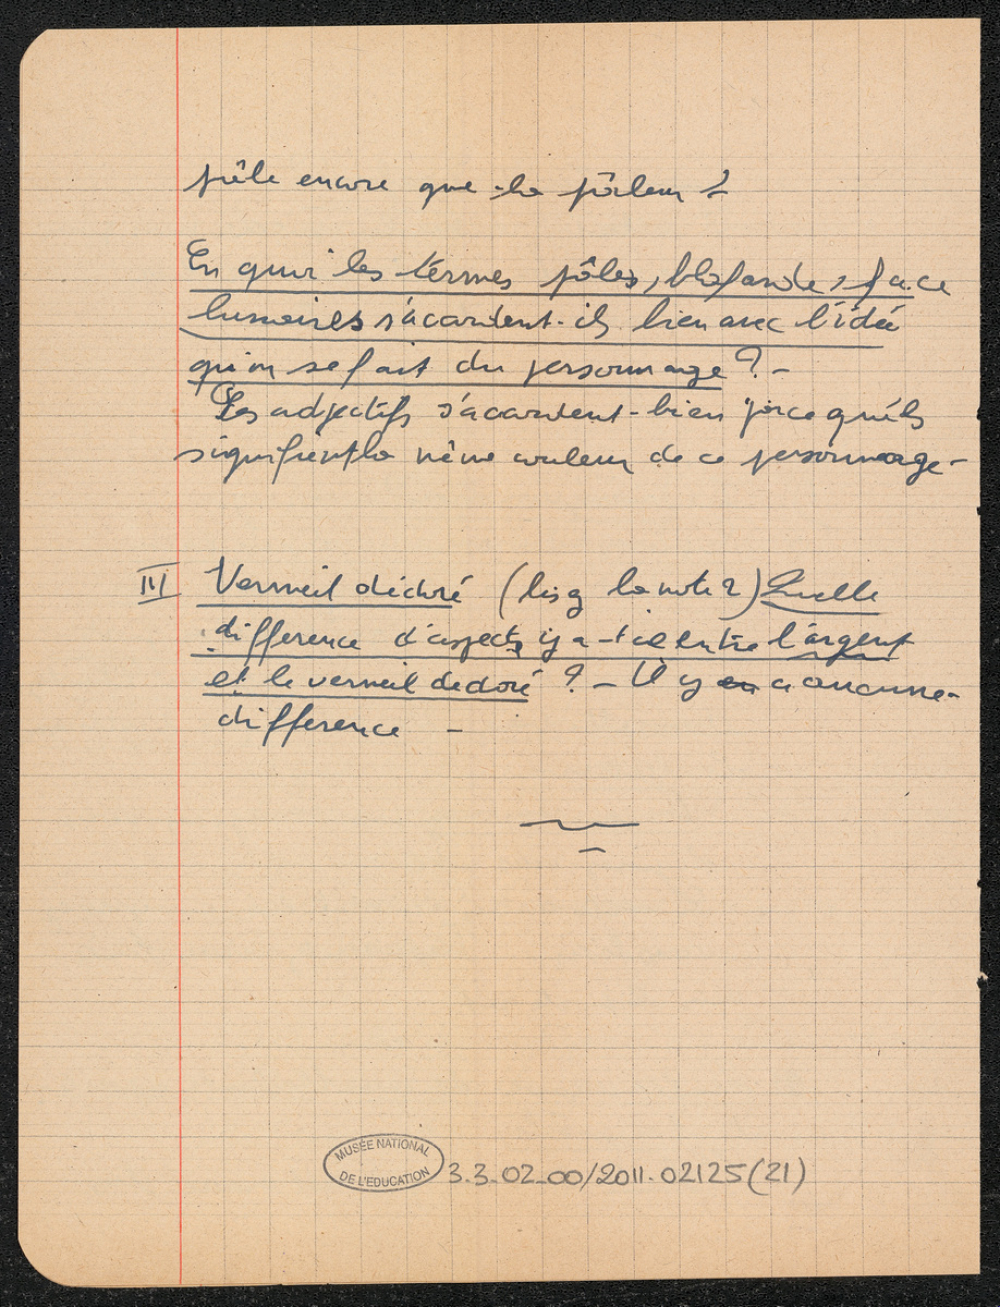 pâle encore que la pâleur ?
En quoi les termes pâles, blafarde, face
lunaires s'accordent-ils bien avec l'idée
qu'on se fait du personnage ? -
Les adjectifs s'accordent-bien parce qu'ils
signifient la même couleur de ce personnage -
III Vermeil dédoré (lis la note 2) Quelle
difference d'aspects y a-t-il entre l'argent
et le vermeil dedoré ? - Il y en a aucune
difference -
MUSÉE NATIONAL
DE L'EDUCATION
3.3.02.00/2011.02125(21)